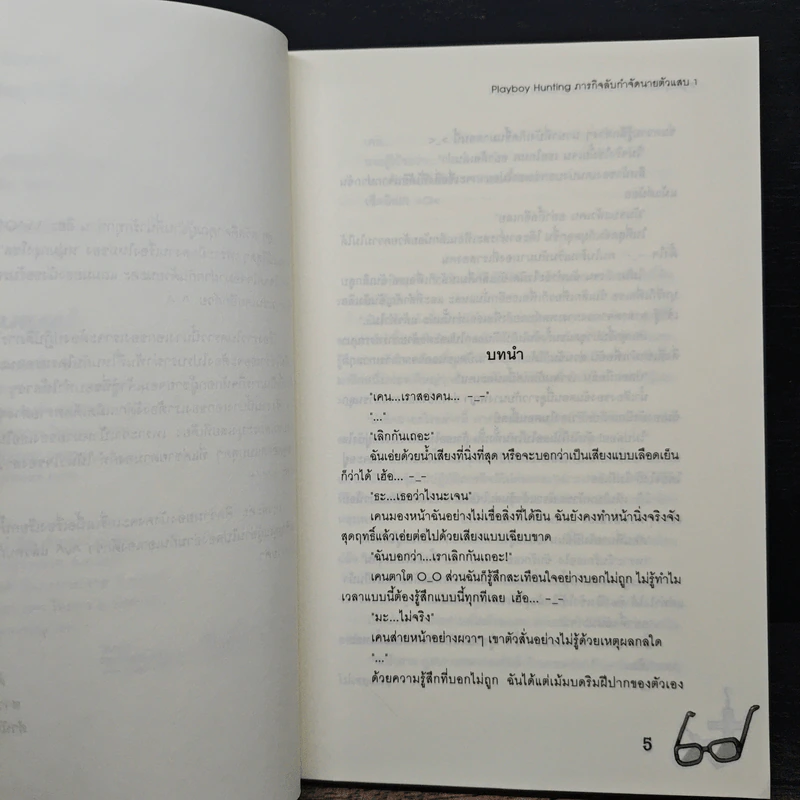 Playboy Hunting ภารกิจลับกำจัดนายตัวแสบ 1
บทนำ
"เคน...เราสองคน... -_-"
"..."
"เลิกกันเถอะ"
ฉันเอ่ยด้วยน้ำเสียงที่นิ่งที่สุด หรือจะบอกว่าเป็นเสียงแบบเลือดเย็น
ก็ว่าได้ เฮ้อ... -_-
"ธะ...เธอว่าไงนะเจน"
เคนมองหน้าฉันอย่างไม่เชื่อสิ่งที่ได้ยิน ฉันยังคงทำหน้านิ่งจริงจัง
สุดฤทธิ์แล้วเอ่ยต่อไปด้วยเสียงแบบเฉียบขาด
"ฉันบอกว่า...เราเลิกกันเถอะ!"
เคนตาโต O_O ส่วนฉันก็รู้สึกสะเทือนใจอย่างบอกไม่ถูก ไม่รู้ทำไม
เวลาแบบนี้ต้องรู้สึกแบบนี้ทุกทีเลย เฮ้อ... -_-
"มะ...ไม่จริง"
เคนส่ายหน้าอย่างผวาๆ เขาตัวสั่นอย่างไม่รู้ด้วยเหตุผลกลใด
"..."
ด้วยความรู้สึกที่บอกไม่ถูก ฉันได้แต่เม้มบดริมฝีปากของตัวเอง
5